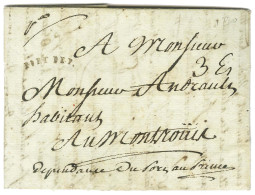 A Monsieur
3 Es
Monsieur Andrault
habitant
Au Montroüis
dependance du Port au Prince